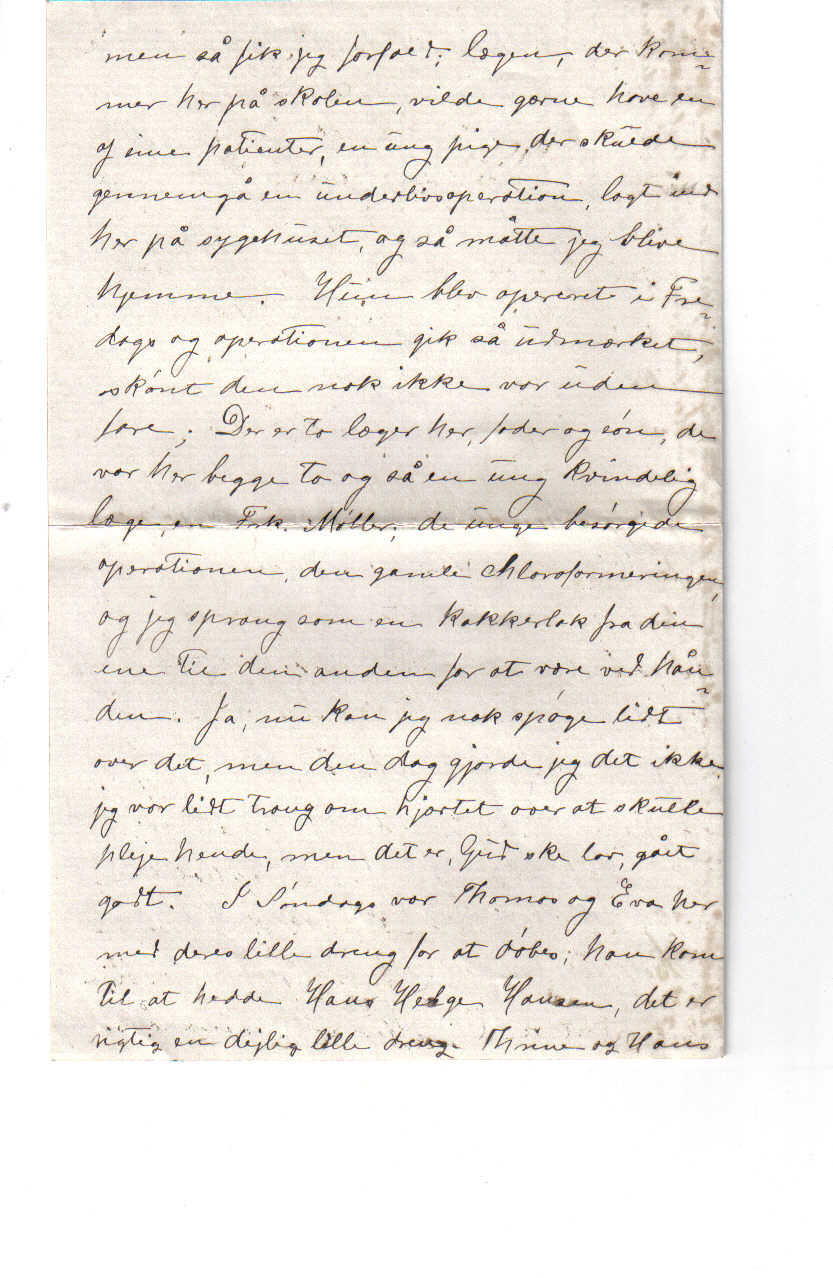 men så fik jeg forfald; lægen, der kom=
mer her på skolen, vilde gærne have en
af sine patienter, en ung pige, der skulde
gennemgå en underlivsoperation, lagt ind
her på sygehuset, og så måtte jeg blive
hjemme. Hun blev opereret i Fre=
dags og operationen gik så udmærket,
skønt den nok ikke var uden
fare; Der er to læger her, fader og søn, de
var her begge to og så en ung kvindelig
læge, en Frk. Møller; de unge besørgede
operationen, den gamle Chloroformeringen,
og jeg sprang som en kakkerlak fra den
ene til den anden for at være ved hån=
den. Ja, nu kan jeg nok spøge lidt
over det, men den dag gjorde jeg det ikke
jeg var lidt trang om hjærtet over at skulle
pleje hende, men det er, Gud ske lov, gået
godt. I Søndags var Thomas og Eva her
med deres lille dreng for at døbes; han kom
til at hedde Hans Helge Hansen, det er
rigtig en dejlig lille dreng. Thrine og Hans